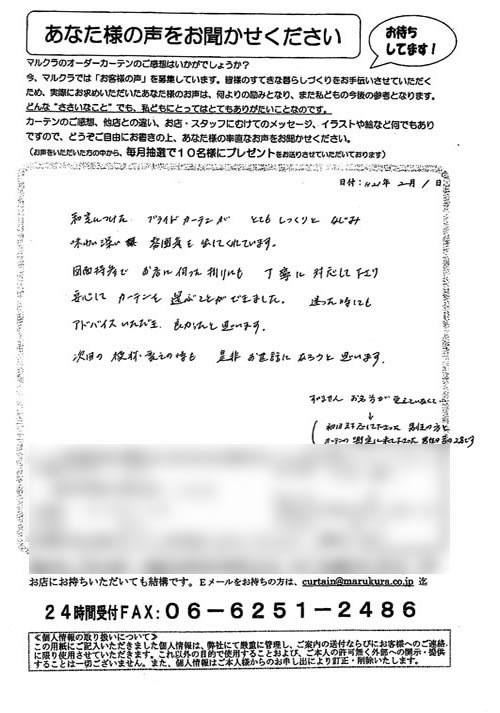 あなた様の声をお聞かせください
お待ち
してます!
マルクラのオーダーカーテンのご感想はいかがでしょうか?
今、マルクラでは「お客様の声」を募集しています。皆様のすてきな暮らしづくりをお手伝いさせていただく
ため、実際にお求めいただいたあなた様のお声は、何よりの励みとなり、また私どもの今後の参考となります。
どんな“ささいなこと”でも、私どもにとってはとてもありがたいことなのです。
カーテンのご感想、他店との違い、お店・スタッフにむけてのメッセージ、イラストや絵など何でもあり
ですので、どうぞご自由にお書きの上、あなた様の率直なお声をお聞かせください。
(お声をいただいた方の中から、毎月抽選で10名様にプレゼントをお送りさせていただいております)
日付:H21年 2月 1日
和室につけた プライドカーテンが とてもしっくりと なじみ
味わい深い 雰囲気を出してくれています。
図面持参で お店に伺った折りにも 丁寧に 対応して下さり
安心して カーテンを 選ぶことができました。 迷った時にも
アドバイスいただき 良かったと思います。
次回の 模様替えの時も 是非 お世話に なろうと 思います。
すみません お名前が 覚えていなくて…
初回対応して下さった 男性の方と
カーテンの 測定に来て下さった 男性の方の2名です
お店にお持ちいただいても結構です。Eメールをお持ちの方は、curtain@marukura.co.jp 迄
24時間受付FAX:06-6251-2486
≪個人情報の取り扱いについて≫
この用紙にご記入いただきました個人情報は、弊社にて厳重に管理し、ご案内の送付ならびにお客様へのご連絡
に限り使用させていただきます。これ以外の目的で使用することおよび、ご本人の許可無く外部への開示・提供
することは一切ございません。また、個人情報はご本人様からのお申し出により訂正・削除いたします。